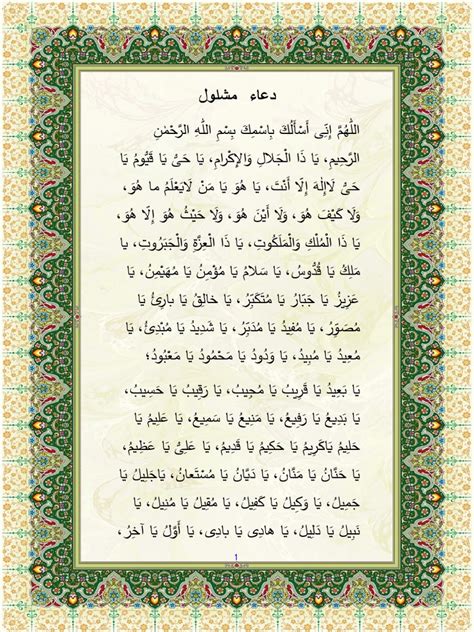 دعاء مشلول
اَللّهُمَّ إِنّى أَسْأَلُكَ بِاسْمِكَ بِسْمِ اللهِ الرَّحْمٰنِ
الرَّحيمِ، يَا ذَا الْجَلالِ وَالإِكْرامِ، يَا حَىُّ يَا قَيُّومُ يَا
حَىُّ لَاإِلهَ إِلّا أَنْتَ، يَا هُوَ يَا مَنْ لَايَعْلَمُ ما هُوَ،
وَلَا كَيْفَ هُوَ، وَلَا أَيْنَ هُوَ، وَلَا حَيْثُ هُوَ إِلّا هُوَ،
يَا ذَا الْمُلْكِ وَالْمَلَكُوتِ، يَا ذَا الْعِزَّةِ وَالْجَبَروُتِ، يا
مَلِكُ يَا قُدُّوسُ، يَا سَلامُ يَا مُؤْمِنُ يَا مُهَيْمِنُ، يَا
عَزيزُ يَا جَبّارُ يَا مُتَكَبِّرُ، يَا خالِقُ يَا بارِئُ يَا
مُصَوِّرُ، يَا مُفيدُ يَا مُدَبِّرُ، يَا شَديدُ يَا مُبْدِئُ، يَا
مُعيدُ يَا مُبيدُ، يَا وَدُودُ يَا مَحْمُودُ يَا مَعْبُودُ؛
يَا بَعيدُ يَا قَريبُ يَا مُجيبُ، يَا رَقيبُ يَا حَسيبُ،
يَا بَديعُ يَا رَفيعُ، يَا مَنيعُ يَا سَميعُ، يَا عَليمُ يَا
حَليمُ يَاكَريمُ يَا حَكيمُ يَا قَديمُ، يَا عَلىُّ يَا عَظيمُ،
يَا حَنّانُ يَا مَنّانُ، يَا دَيّانُ يَا مُسْتَعانُ، يَاجَليلُ يَا
جَميلُ، يَا وَكيلُ يَا كَفيلُ، يَا مُقيلُ يَا مُنيلُ، يَا
نَبيلُ يَا دَليلُ، يَا هادِى يَا بادِى، يَا أَوَّلُ يَا آخِرُ ،
1